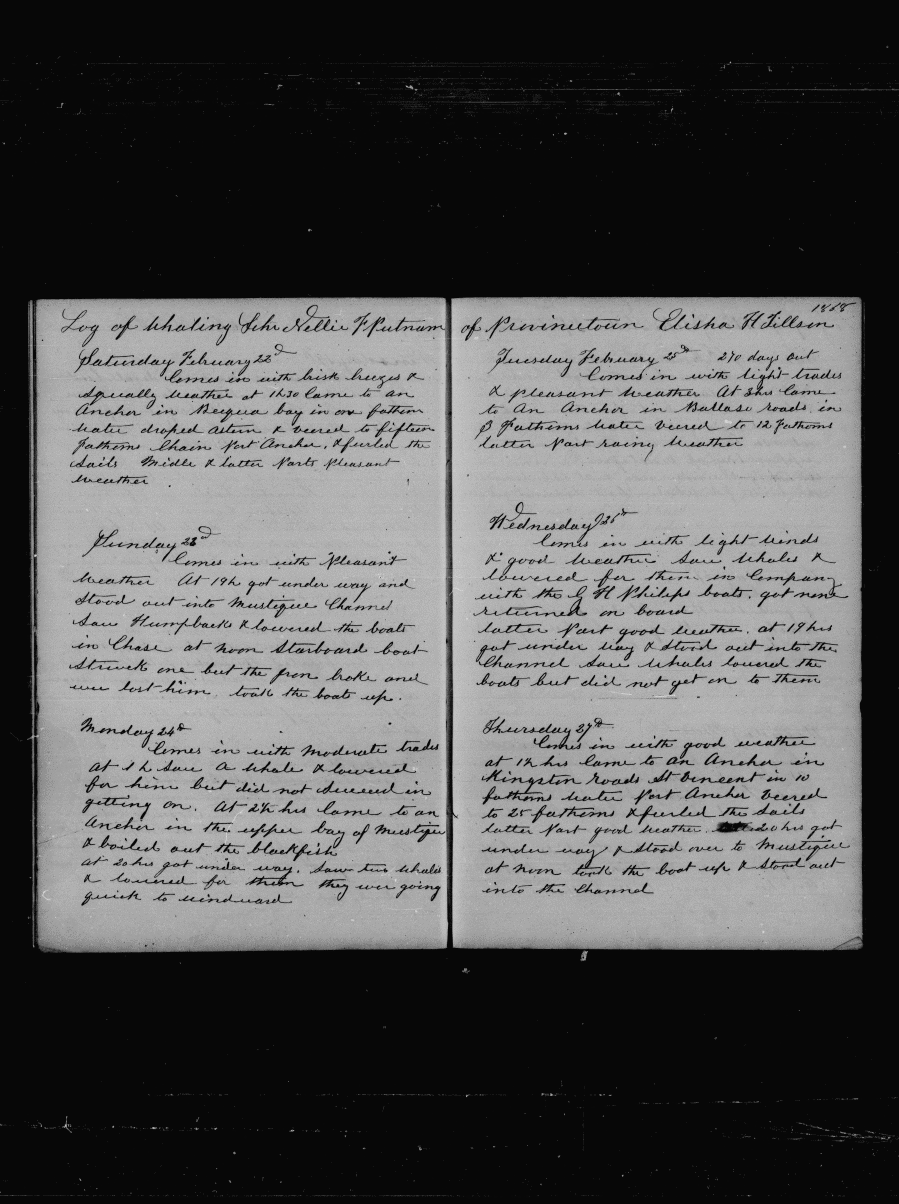 Log of Whaling Schr Nellie F Putnam
Saturday February 22d
Comes in with brisk breezes &
squally weather at 1h30 Came to an
Anchor in Bequa bay in one fathom
Water droped astern & veered to fifteen
Fathoms Chain Port Anchor, & furled the
Sails Midle & latter Parts Pleasant
Weather
Sunday 23d
Comes in with Pleasant
Weather At 19h got under way and
Stood out into Mustique Channel
Saw Humpbacks & lowered the boats
in Chase at noon Starboard boat
Struck one but the Iron broke and
we lost him. took the boats up.
Monday 24th
Comes in with Moderate trades
at 1h Saw A Whale & lowered
for him but did not Succeed in
getting on. At 2½ hrs Came to an
Anchor in the upper bay of Mustique
& boiled out the blackfish
at 20 hrs got under way. Saw two whales
& lowered for them they wer going
quick to windward
1868
of Provincetown Elisha H Tillson
Tuesday February 25th 270 days out
Comes in with light trades
& pleasant Weather At 3hrs Came
to An Anchor in Ballaso roads in
8 Fathoms Water veered to 12 Fathoms
latter Part rainy Weather
Wednesday 26th
Comes in with light Winds
& good Weather Saw Whales &
lowered for them in Company
with the G H Philips boats. got none
returned on board
latter Part good Weather. at 19 hrs
got under way & Stood out into the
Channel Saw Whales lowered the
boats but did not get on to them
Thursday 27th
Comes in with good weather
at 12 hrs Came to an Anchor in
Kingston roads St Vincent in 10
fathoms Water Port Anchor Veered
to 25 fathoms & furled the Sails
latter Part good Weather. 20 hrs got
under way & Stood over to Mustique
at noon took the boat up & Stood out
into the Channel